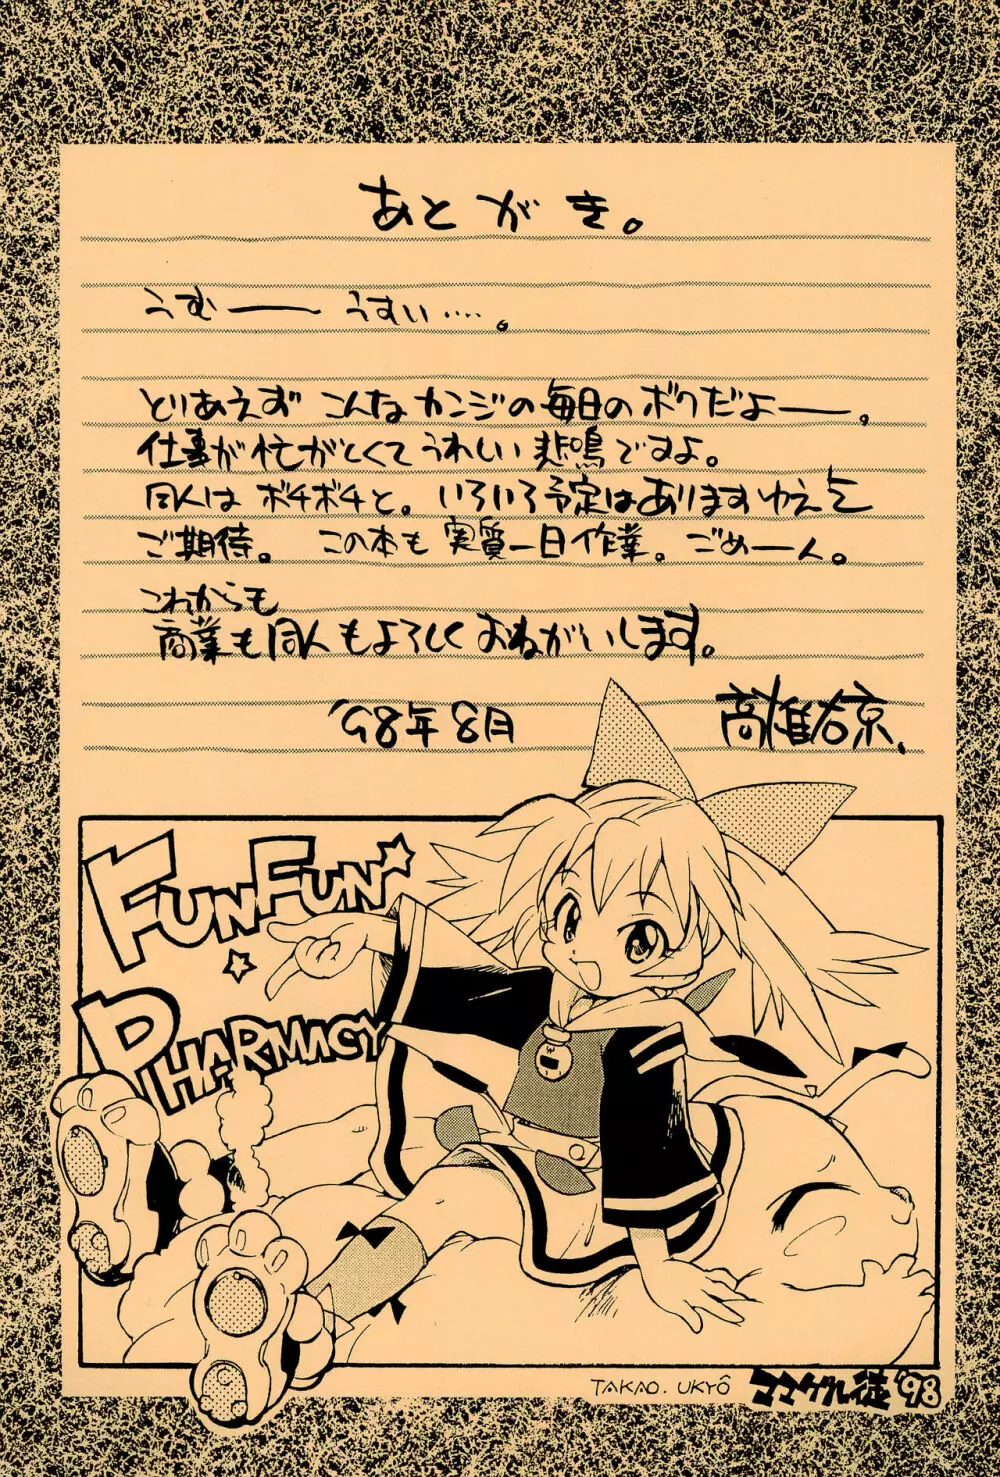 あとがき。
うむー うすい‥‥。
とりあえず こんなカンジの毎日のボクだよー。
仕事が忙がしくて うれしい 悲鳴ですよ。
同人は ボチボチと。いろいろ予定はありますゆえに
ご期待。 この本も 実質一日作業。ごめーん。
これからも
商業も同人もよろしく おねがいします。
'98年8月 高雄右京.
FUNFUN☆
☆
PHARMACY
TAKAO.UKYÔ ママゲル徒'98